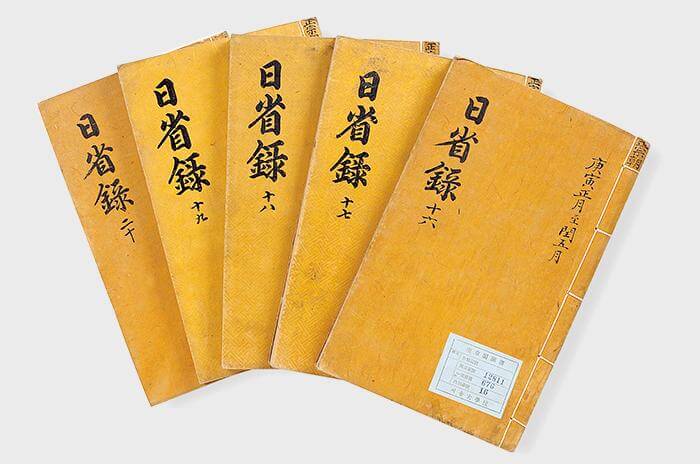 日省錄 二十
日省錄 十九
日省錄 十八
日省錄 十七
日省錄 十六
庚寅正月至閏五月
12811
676
16